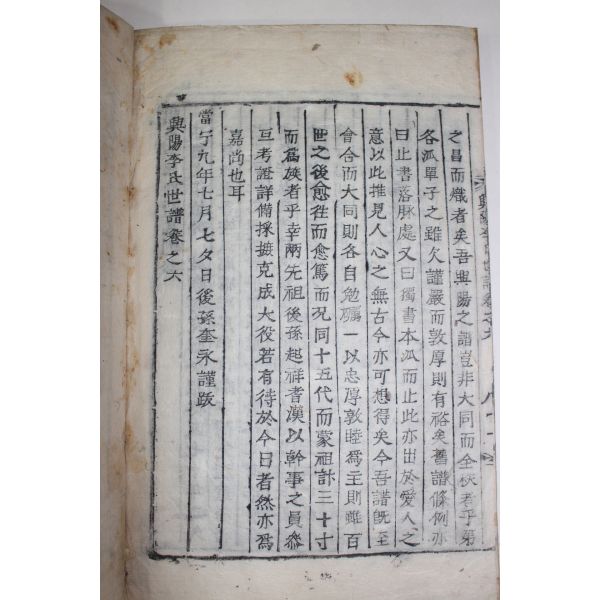 之昌而熾者矣吾興陽之譜豈非大同而全佚者乎第
各派單子之雖欠謹嚴而敦厚則有裕矣舊譜條例亦
曰止書落脉處又曰獨書本派而止此亦出於愛人之
意以此推見人心之無古今亦可想得矣今吾譜旣至
會合而大同則各自勉礪一以忠厚敦睦爲主則雖百
世之後愈徃而愈篤而况同十五代而蒙祖訃三十寸
而爲族者乎幸兩先祖後孫起祥書漢以幹事之員叅
互考證詳備採摭克成大役若有待於今日者然亦爲
嘉尙也耳
當宁九年七月七夕日後孫奎永謹跋
興陽李氏世譜卷之六